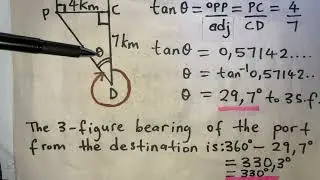 4km
P
C
7km
θ
D
tanθ = opp/adj = PC/CD = 4/7
tanθ = 0,57142....
θ = tan⁻¹0,57142..
θ = 29,7° to 3s.f.
The 3-figure bearing of the port
from the destination is:360°- 29,7°
= 330,3°
= 330°